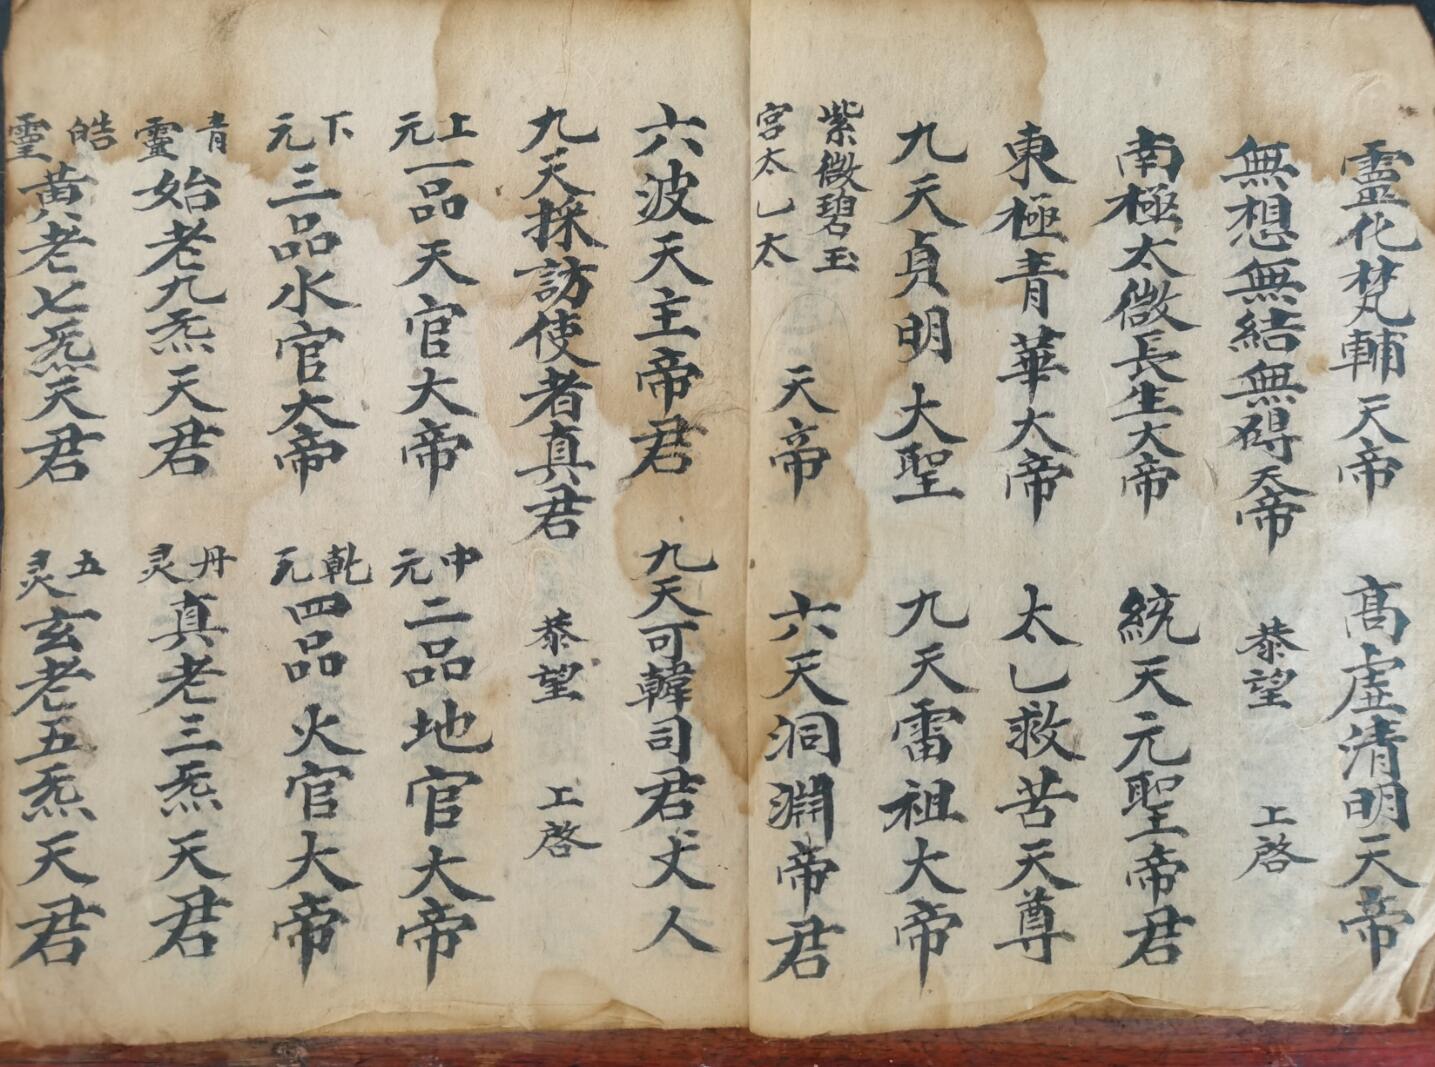 靈化梵輔天帝　高虛清明天帝
無想無結無碍天帝　恭望　上啓
南極太微長生大帝　統天元聖帝君
東極青華大帝　太乙救苦天尊
九天貞明大聖　九天雷祖大帝
紫微碧玉宮太乙太天帝　六天洞淵帝君
六波天主帝君　九天可韓司君丈人
九天採訪使者真君　恭望　上啓
上元一品天官大帝　中元二品地官大帝
下元三品水官大帝　乾元四品火官大帝
青靈始老九炁天君　丹灵真老三炁天君
皓靈黃老七炁天君　五灵玄老五炁天君